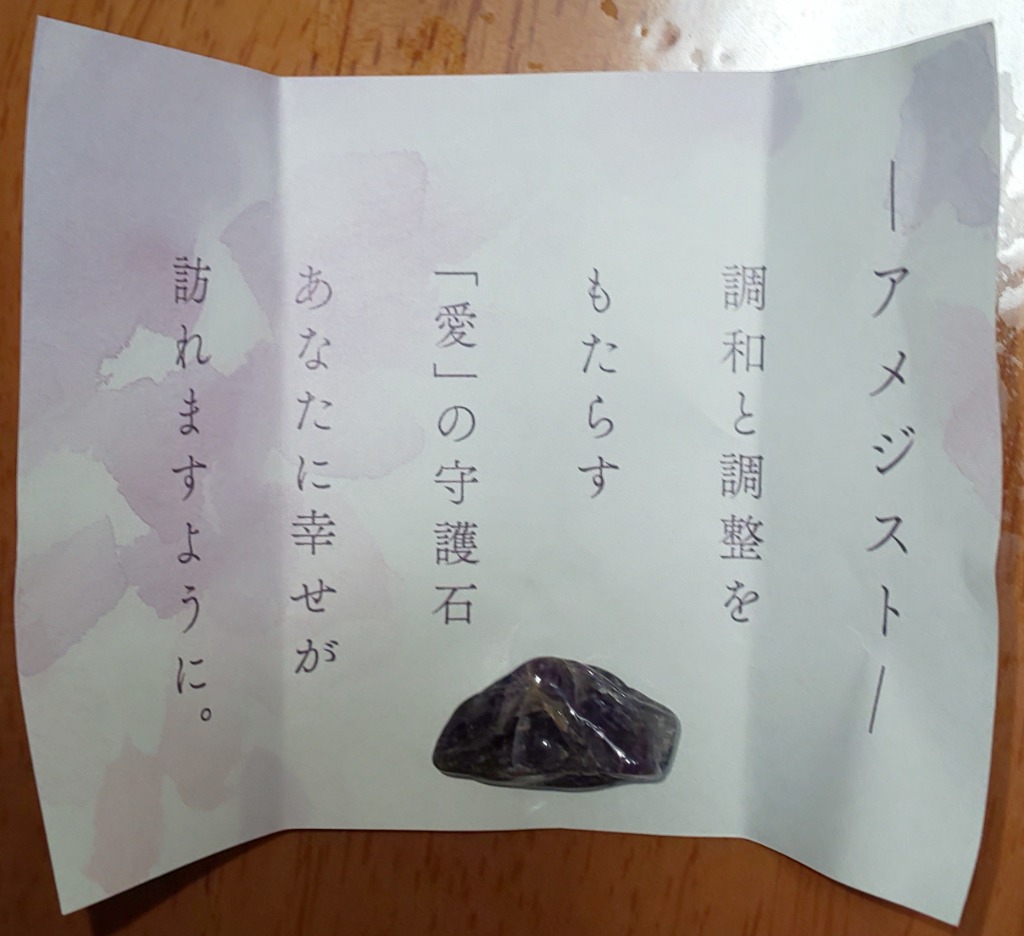 ―アメジスト―
調和と調整を
もたらす
「愛」の守護石
あなたに幸せが
訪れますように。